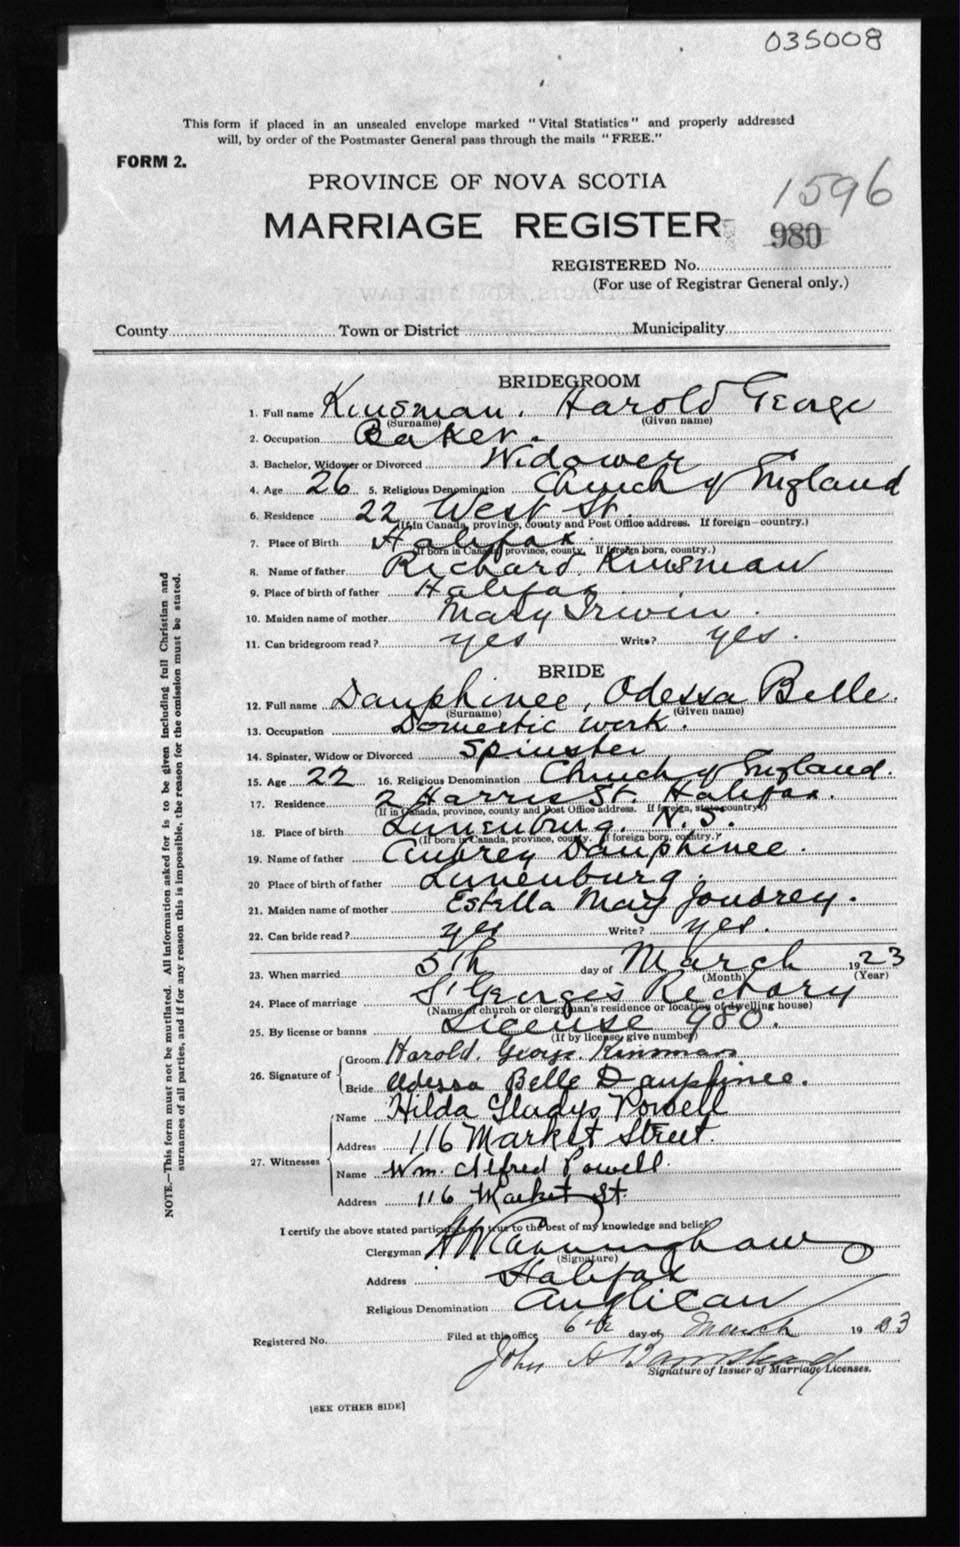 035008
This form if placed in an unsealed envelope marked "Vital Statistics" and properly addressed
will, by order of the Postmaster General pass through the mails "FREE."
FORM 2.
PROVINCE OF NOVA SCOTIA
1596
MARRIAGE REGISTER 980
REGISTERED No.
(For use of Registrar General only.)
County Town or District Municipality
BRIDEGROOM
1. Full name Kinsman, Harold George
(Surname) (Given name)
2. Occupation Baker.
3. Bachelor, Widower or Divorced Widower
4. Age 26 5. Religious Denomination Church of England
6. Residence 22 West St.
(If in Canada, province, county and Post Office address. If foreign—country.)
7. Place of Birth Halifax.
(If born in Canada, province, county. If foreign born, country.)
8. Name of father Richard Kinsman
9. Place of birth of father Halifax
10. Maiden name of mother Mary Irwin.
11. Can bridegroom read? yes Write? yes.
BRIDE
12. Full name Dauphinee, Odessa Belle.
(Surname) (Given name)
13. Occupation Domestic work.
14. Spinster, Widow or Divorced Spinster
15. Age 22 16. Religious Denomination Church of England.
17. Residence 2 Harris St. Halifax.
(If in Canada, province, county and Post Office address. If foreign, state country.)
18. Place of birth Lunenburg. N.S.
(If born in Canada, province, county. If foreign born, country.)
19. Name of father Aubrey Dauphinee.
20 Place of birth of father Lunenburg.
21. Maiden name of mother Estella May Joudrey.
22. Can bride read? yes Write? yes.
23. When married 5th day of March 1923
(Month) (Year)
24. Place of marriage St George's Rectory
(Name of church or clergyman's residence or location of dwelling house)
25. By license or banns License 980.
(If by license, give number)
26. Signature of
Groom Harold. George. Kinsman
Bride Odessa Belle Dauphinee.
27. Witnesses
Name Hilda Gladys Powell
Address 116 Market Street.
Name Wm. Alfred Powell.
Address 116 Market St.
I certify the above stated particulars are true to the best of my knowledge and belief.
Clergyman H W Cunningham
(Signature)
Address Halifax
Religious Denomination Anglican
Registered No. Filed at this office 6th day of March 1923
John A
Signature of Issuer of Marriage Licenses.
[SEE OTHER SIDE]
NOTE.—This form must not be mutilated. All information asked for is to be given including full Christian and
surnames of all parties, and if for any reason this is impossible, the reason for the omission must be stated.